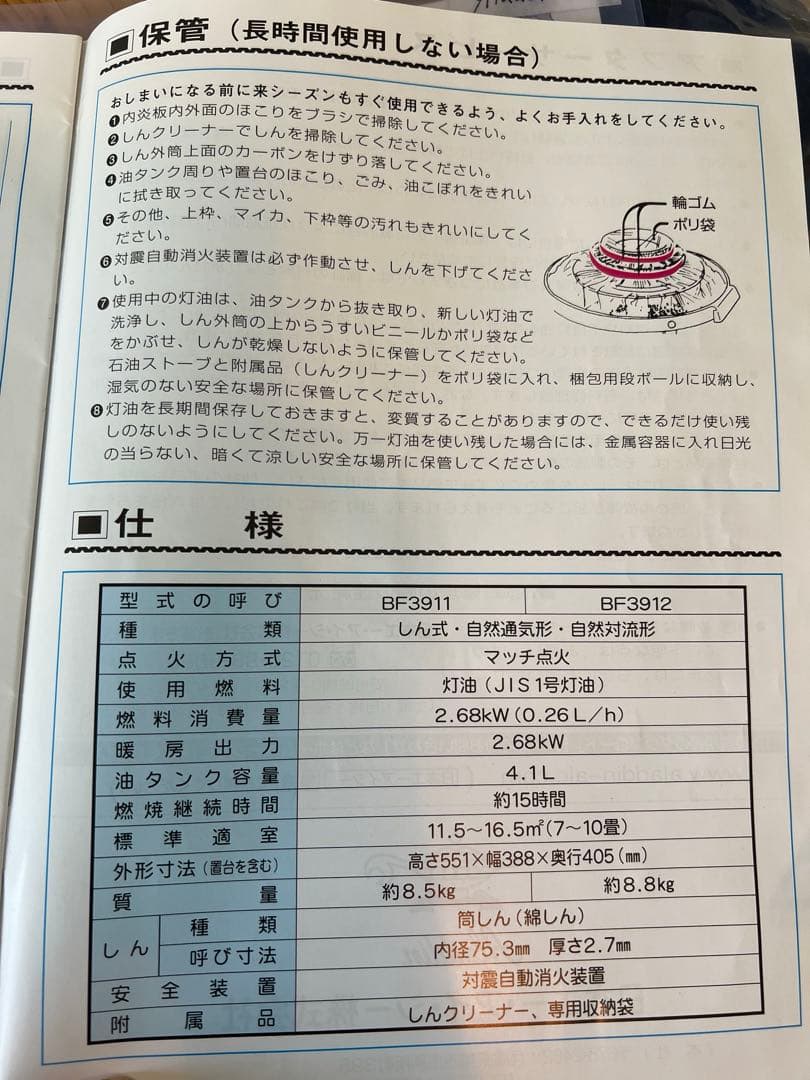 ■保管（長時間使用しない場合）
おしまいになる前に来シーズンもすぐ使用できるよう、よくお手入れをしてください。
❶内炎板内外面のほこりをブラシで掃除してください。
❷しんクリーナーでしんを掃除してください。
❸しん外筒上面のカーボンをけずり落してください。
❹油タンク周りや置台のほこり、ごみ、油こぼれをきれい
に拭き取ってください。
❺その他、上枠、マイカ、下枠等の汚れもきれいにしてく
ださい。
❻対震自動消火装置は必ず作動させ、しんを下げてくださ
い。
❼使用中の灯油は、油タンクから抜き取り、新しい灯油で
洗浄し、しん外筒の上からうすいビニールかポリ袋など
をかぶせ、しんが乾燥しないように保管してください。
石油ストーブと附属品（しんクリーナー）をポリ袋に入れ、梱包用段ボールに収納し、
湿気のない安全な場所に保管してください。
❽灯油を長期間保存しておきますと、変質することがありますので、できるだけ使い残
しのないようにしてください。万一灯油を使い残した場合には、金属容器に入れ日光
の当らない、暗くて涼しい安全な場所に保管してください。
輪ゴム
ポリ袋
■仕様
型式の呼び BF3911 BF3912
種類 しん式・自然通気形・自然対流形
点火方式 マッチ点火
使用燃料 灯油（JIS1号灯油）
燃料消費量 2.68kW（0.26L/h）
暖房出力 2.68kW
油タンク容量 4.1L
燃焼継続時間 約15時間
標準適室 11.5〜16.5㎡（7〜10畳）
外形寸法（置台を含む） 高さ551×幅388×奥行405（㎜）
質量 約8.5kg 約8.8kg
しん 種類 筒しん（綿しん）
呼び寸法 内径75.3㎜ 厚さ2.7㎜
安全装置 対震自動消火装置
附属品 しんクリーナー、専用収納袋